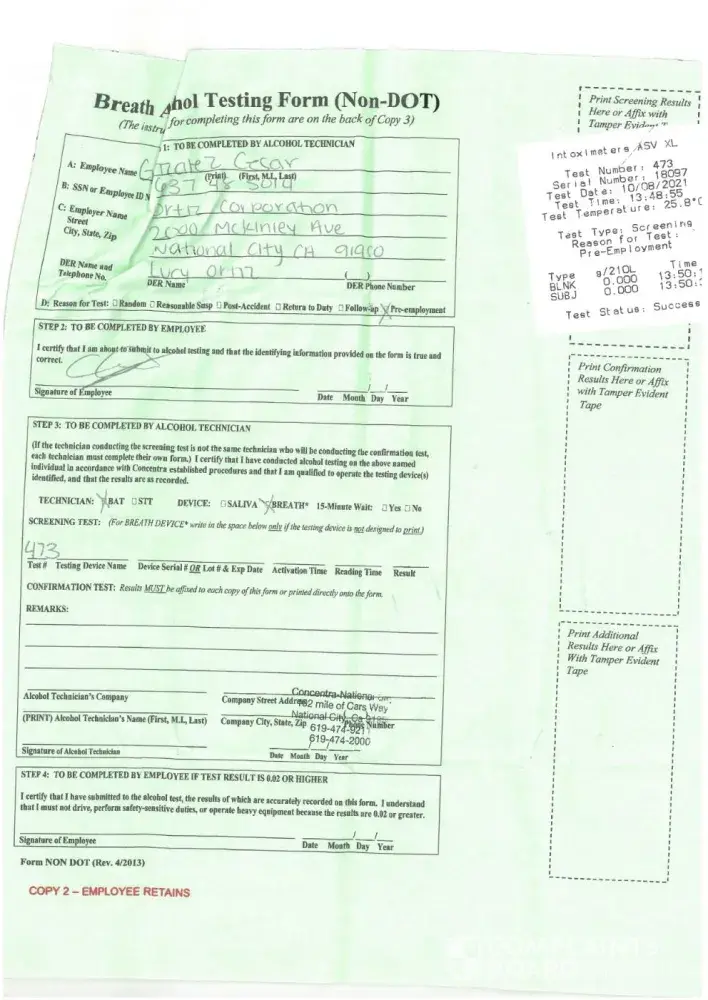 Breath Ahol Testing Form (Non-DOT)
(The instru for completing this form are on the back of Copy 3)
1: TO BE COMPLETED BY ALCOHOL TECHNICIAN
A: Employee Name Cesar
(Print) (First, M.I., Last)
B: SSN or Employee ID N 637 48 5014
C: Employer Name Ortiz Corporation
Street 2000 McKinley Ave
City, State, Zip National City CA 91950
DER Name and Lucy Ortiz ( )
Telephone No. DER Name DER Phone Number
D: Reason for Test: Random Reasonable Susp Post-Accident Return to Duty Follow-up Pre-employment
STEP 2: TO BE COMPLETED BY EMPLOYEE
I certify that I am about to submit to alcohol testing and that the identifying information provided on the form is true and
correct.
Signature of Employee Date Month Day Year
STEP 3: TO BE COMPLETED BY ALCOHOL TECHNICIAN
(If the technician conducting the screening test is not the same technician who will be conducting the confirmation test,
each technician must complete their own form.) I certify that I have conducted alcohol testing on the above named
individual in accordance with Concentra established procedures and that I am qualified to operate the testing device(s)
identified, and that the results are as recorded.
TECHNICIAN: BAT STT DEVICE: SALIVA BREATH* 15-Minute Wait: Yes No
SCREENING TEST: (For BREATH DEVICE* write in the space below only if the testing device is not designed to print.)
473
Test # Testing Device Name Device Serial # OR Lot # & Exp Date Activation Time Reading Time Result
CONFIRMATION TEST: Results MUST be affixed to each copy of this form or printed directly onto the form.
REMARKS:
Concentra-National
Alcohol Technician's Company Company Street Address mile of Cars Way
National City, Ca
(PRINT) Alcohol Technician's Name (First, M.I., Last) Company City, State, Zip Phone Number
619-474-9211
619-474-2000
Signature of Alcohol Technician Date Month Day Year
STEP 4: TO BE COMPLETED BY EMPLOYEE IF TEST RESULT IS 0.02 OR HIGHER
I certify that I have submitted to the alcohol test, the results of which are accurately recorded on this form. I understand
that I must not drive, perform safety-sensitive duties, or operate heavy equipment because the results are 0.02 or greater.
Signature of Employee Date Month Day Year
Form NON DOT (Rev. 4/2013)
COPY 2 – EMPLOYEE RETAINS
Print Screening Results
Here or Affix with
Tamper
Intoximeters ASV XL
Test Number: 473
Serial Number: 18097
Test Date: 10/08/2021
Test Time: 13:48:55
Test Temperature: 25.8°C
Test Type: Screening
Reason for Test:
Pre-Employment
Type g/210L Time
BLNK 0.000 13:50:
SUBJ 0.000 13:50:
Test Status: Success
Print Confirmation
Results Here or Affix
with Tamper Evident
Tape
Print Additional
Results Here or Affix
With Tamper Evident
Tape